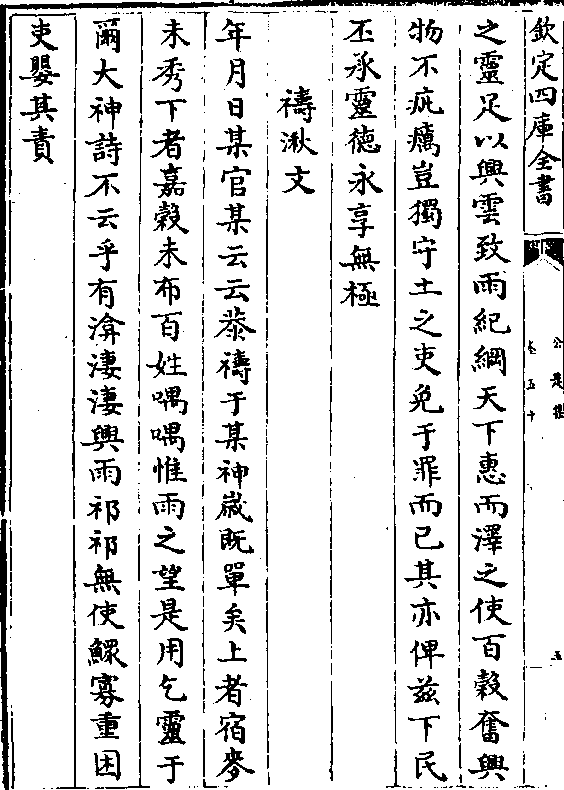 欽定四庫全書
公是集
卷五十
五
之靈足以興雲致雨紀綱天下惠而澤之使百穀奮興
物不疵癘豈獨守土之吏免于罪而已其亦俾兹下民
丕承靈德永享無極
禱湫文
年月日某官某云云恭禱于某神嵗既單矣上者宿麥
未秀下者嘉穀未布百姓喁喁惟雨之望是用乞靈于
爾大神詩不云乎有渰淒淒興雨祁祁無使鰥寡重困
吏嬰其責